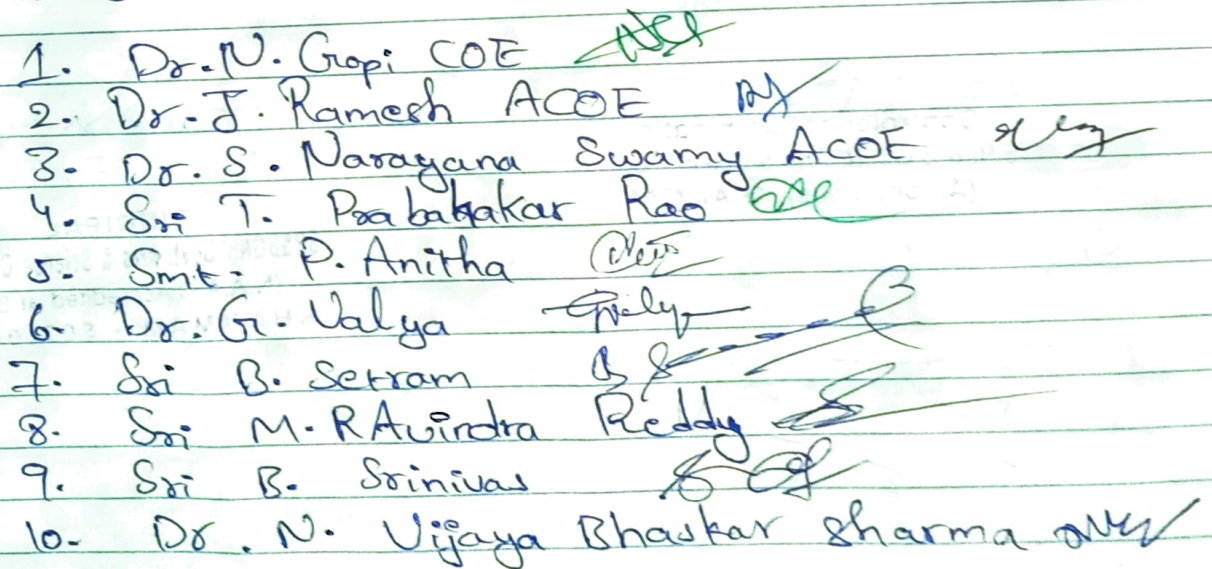 1. Dr. N. Gopi COE
2. Dr. J. Ramesh ACOE
3. Dr. S. Narayana Swamy ACOE
4. Sri T. Prabahakar Rao
5. Smt. P. Anitha
6. Dr. G. Valya
7. Sri B. Setram
8. Sri M. RAvindra Reddy
9. Sri B. Srinivas
10. Dr. N. Vijaya Bhaskar Sharma